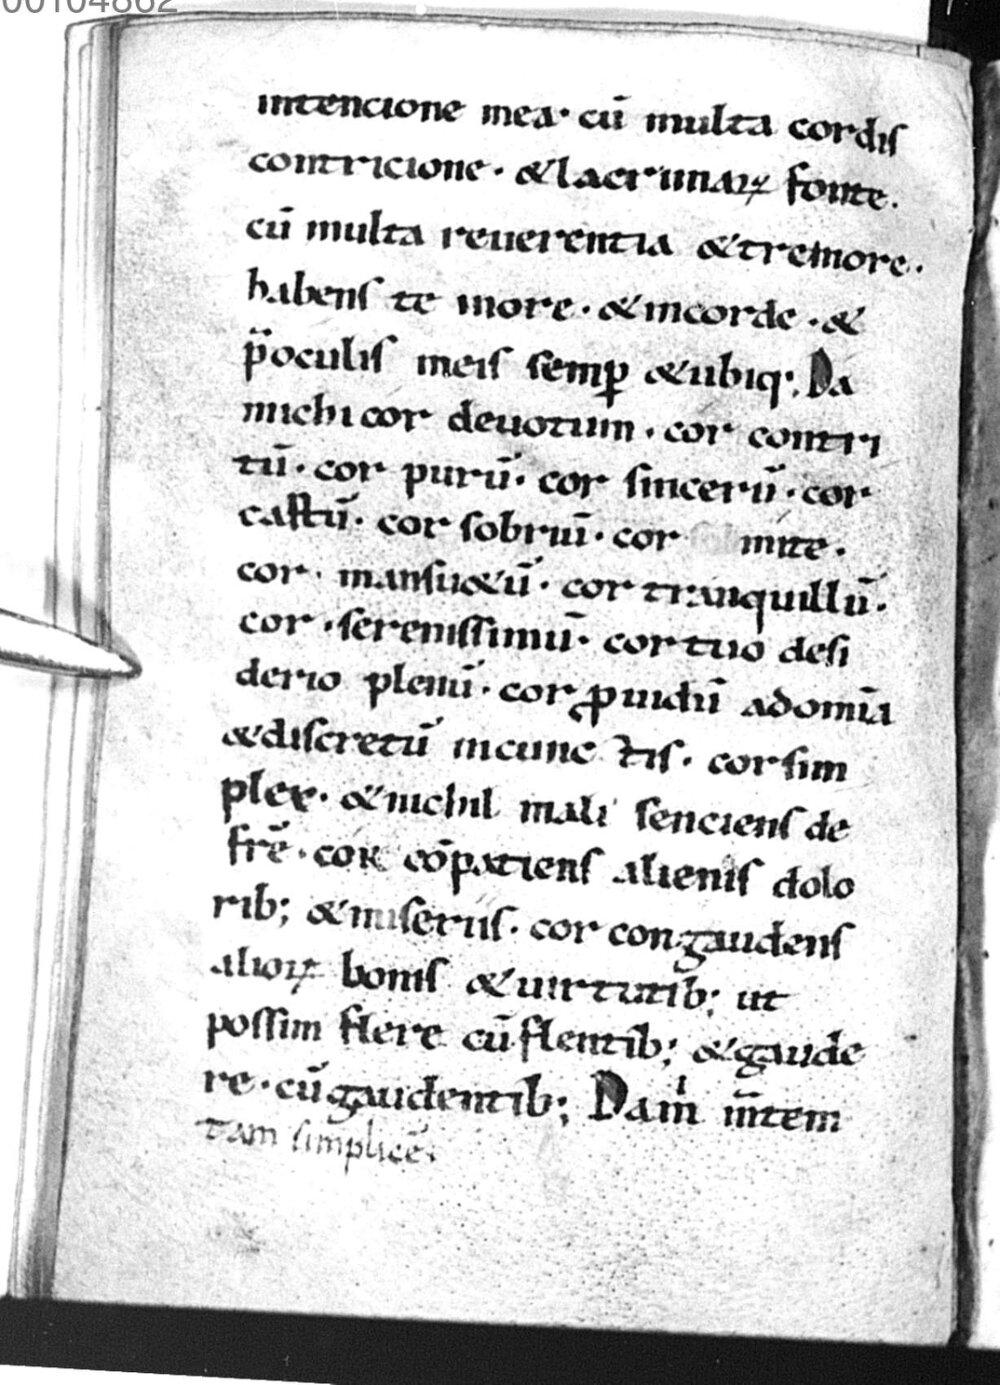 00104862
intencione mea· cū multa cordis
contricione· &lacrimaꝝ fonte.
cū multa reuerentia &tremore·
habens te inore· &incorde ·&
p̄oculis meis semꝑ &ubiq; Da
michi cor deuotum· cor contri
tū· cor purū· cor sincerū· cor
castū· cor sobriū· cor mite·
cor· mansu&ū· cor tranquillū·
cor ·serenissimū· cor tuo desi
derio plenū· cor ꝓuidū adomīa
&discretū incunc tis· cor sim
plex· &nichil mali senciens de
fr̄e· cor cōpatiens alienis dolo
rib; &miseriis· cor congaudens
alioꝝ bonis &uirtutib; ut
possim flere cū flentib; &gaude
re· cū gaudentib; Da m̍ m̄tem
tam simplicē·